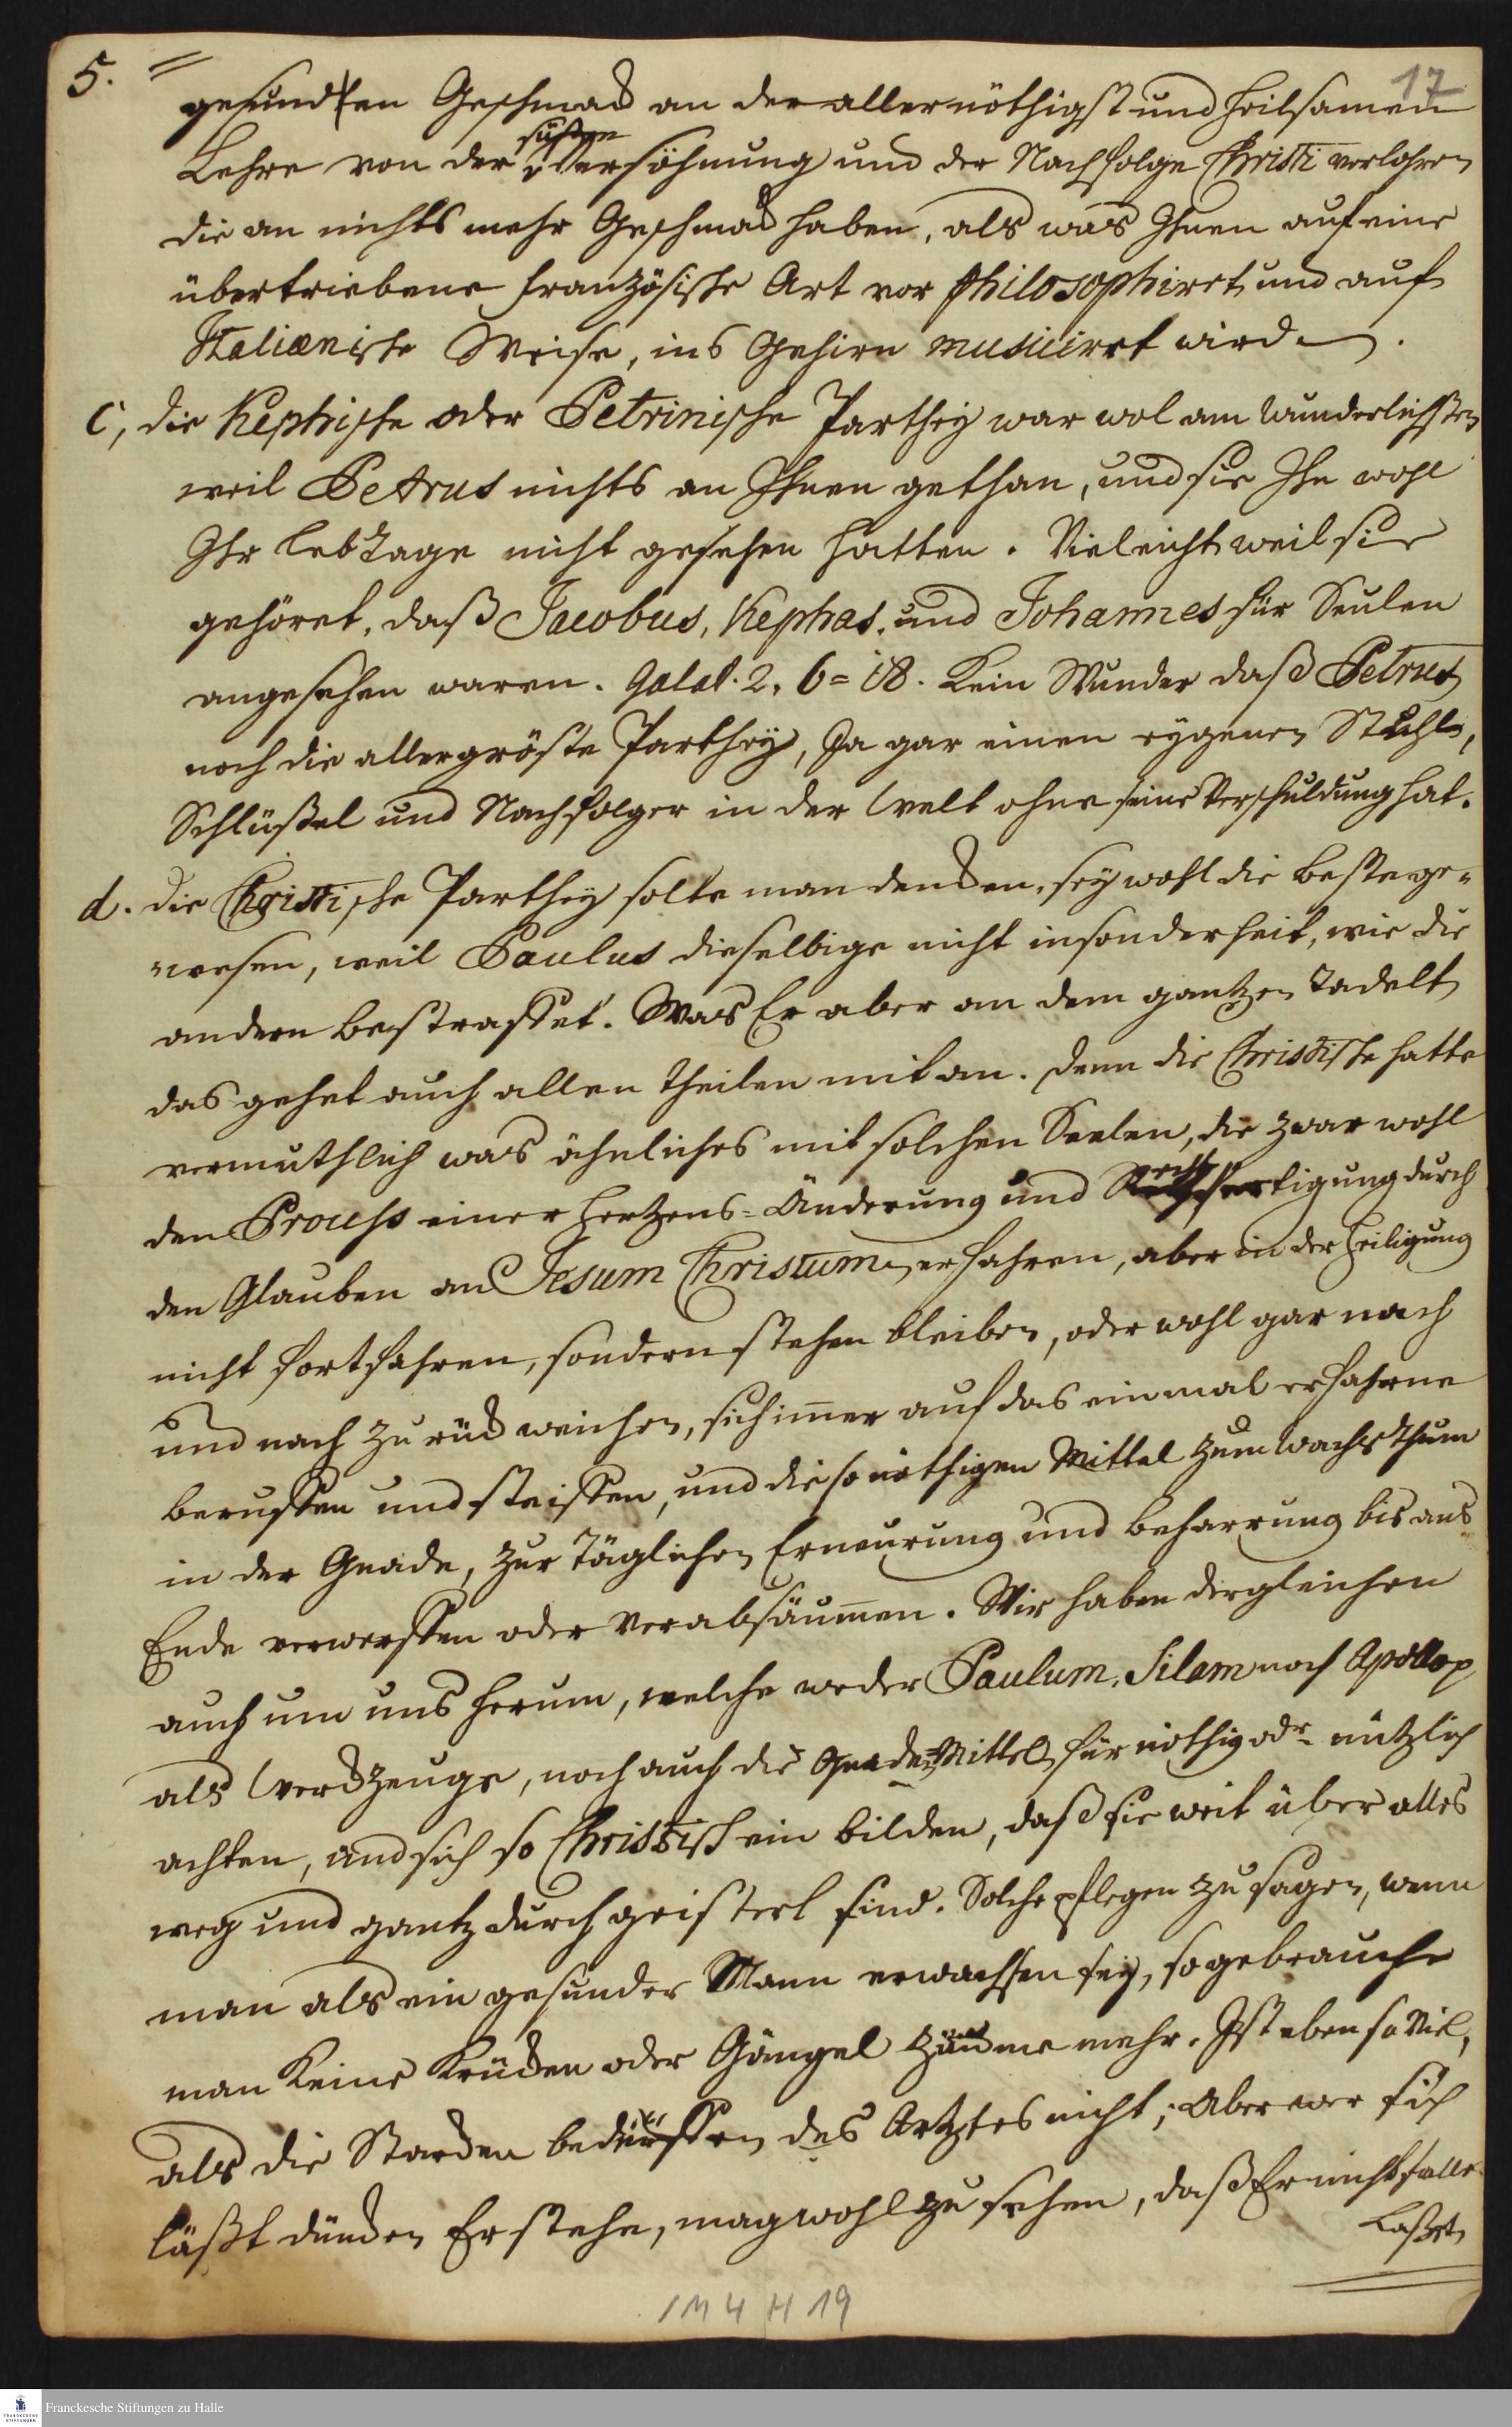 5. =
17
gesundten Geschmack an der allernöthigst und heilsamen
süßen
Lehre von der Versöhnung und der Nachfolge Christi verlohren
die an nichts mehr Geschmack haben, als was Ihnen auf eine
übertriebene französische Art vor philosophiret und auf
Italiænische Weise, ins Gehirn musiciret wird.
c, die Kephische oder Petrinische Parthey war wol am wunderlichsten
weil Petrus nichts an Ihnen gethan, und sie Ihn wohl
Ihr lebTage nicht gesehen hatten. Vieleicht weil sie
gehöret, daß Jacobus, Kephas, und Johannes für Seulen
angesehen waren. Galat. 2, 6=18. Kein Wunder daß Petrus
noch die allergröste Parthey, Ja gar einen eygenen Stuhl,
Schlüßel und Nachfolger in der Welt ohne seine Verschuldung hat.
d. die Christische Parthey solte man dencken, sey wohl die beste ge=
=wesen, weil Paulus dieselbige nicht insonderheit, wie die
andern bestraffet. Was Er aber an dem gantzen Tadelt
das gehet auch allen theilen mit an. denn die Christische hatte
vermuthlich was ähnliches mit solchen Seelen, die zwar wohl
den Process einer Hertzens=Änderung und Rechtfertigung durch
den Glauben an Jesum Christum erfahren, aber in der Heiligung
nicht fortfahren, sondern stehen bleiben, oder wohl gar nach
und nach zurück weichen, sich im̅er auf das einmal erfahrne
beruffen und steiffen, und die so nöthigen Mittel zum Wachsthum
in der Gnade, zur Täglichen Erneurung und beharrung bis ans
Ende verwerffen oder verabsäum̅en. Wir haben dergleichen
auch um uns herum, welche weder Paulum, Silam noch Apollo
als Werckzeuge, noch auch die Gnaden=Mittel für nöthig odr nützlich
achten, und sich so Christisch ein bilden, daß sie weit über alles
weg und gantz durch geistert sind. Solche pflegen zu sagen, wenn
man als ein gesunder Mann erwachsen sey, so gebrauche
man keine Krücken oder Gängel Zäume mehr. Ist eben so viel,
als die Starcken bedürffen des Artztes nicht; Aber wer sich
läßt düncken Er stehe, mag wohl zu sehen, daß Er nicht falle.
Laßet
1 M 4 H 19
Franckesche Stiftungen zu Halle